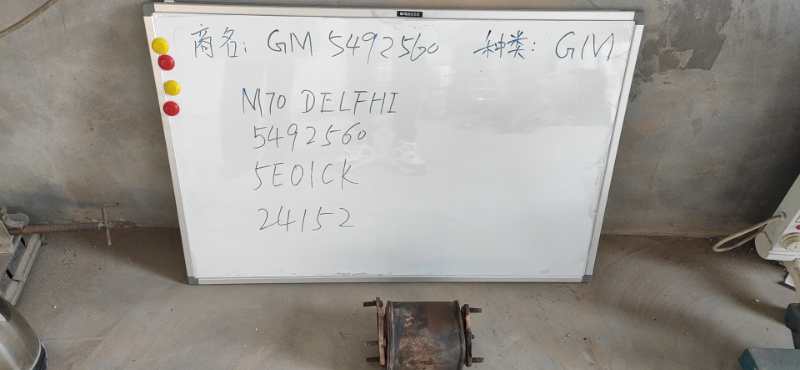 商名: GM 5492560 种类: GM
M70 DELFHI
5492560
5E01CK
24152